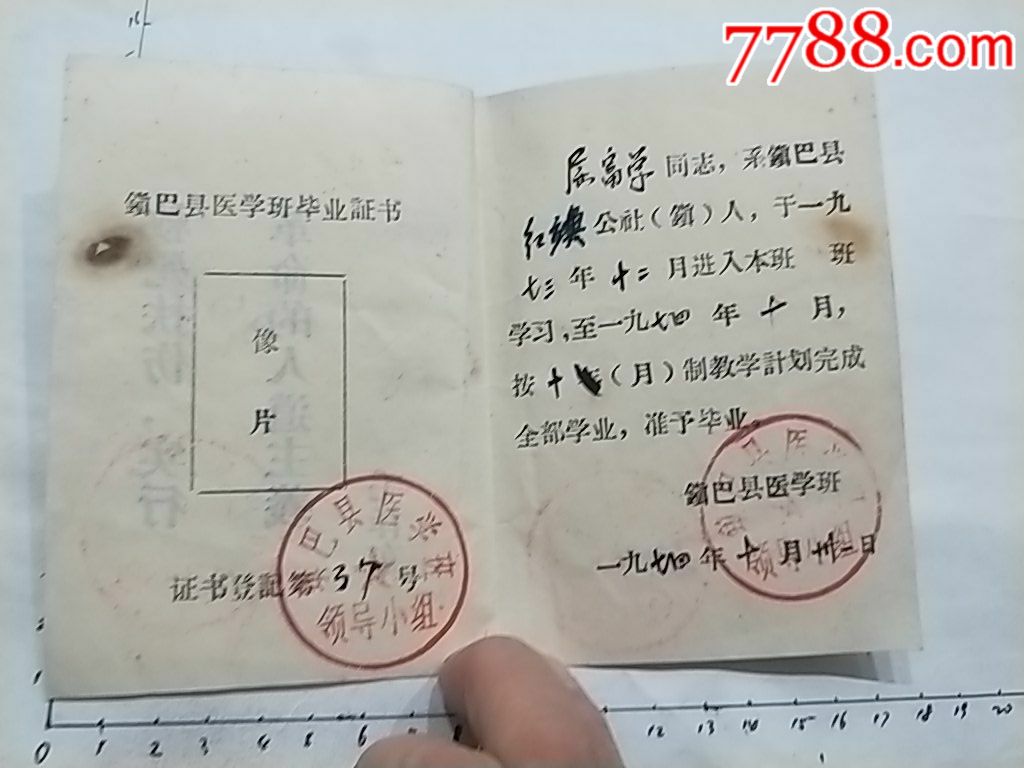 7788.com
鎮巴县医学班毕业証书
像
片
证书登記第37号
巴县医学班
领导小组
屈富学同志，系鎮巴县
红旗公社（鎮）人，于一九
七三年十二月进入本班 班
学习，至一九七四年十月，
按十（月）制教学計划完成
全部学业，准予毕业。
鎮巴县医学班
一九七四年十月卅一日
领导小组
0 1 2 3 4 5 6 7 8 12 13 14 15 16 17 18 19 20